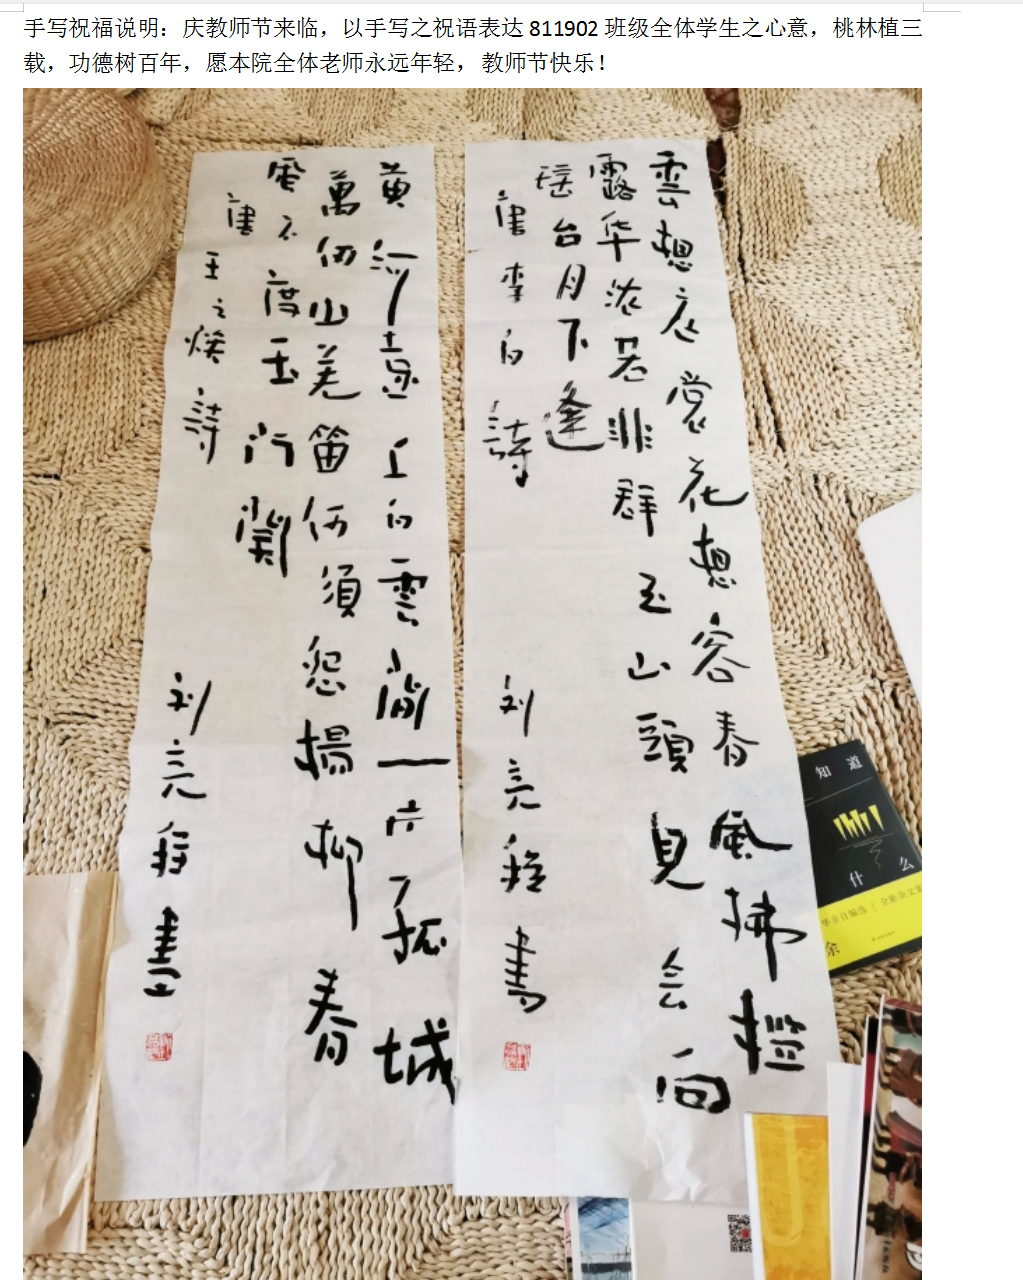 手写祝福说明：庆教师节来临，以手写之祝语表达 811902 班级全体学生之心意，桃林植三
载，功德树百年，愿本院全体老师永远年轻， 教师节快乐！
雲想衣裳花想容春風拂槛
露华浓若非群玉山頭見会向
瑶台月下逢
唐李白詩
刘亮程書
黄河遠上白雲间一片孤城
萬仞山羌笛何須怨楊柳春
風不度玉门関
唐王之涣詩
刘亮程書
知道
什么